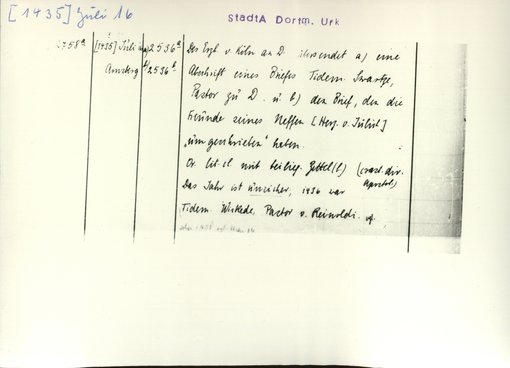 [1435] Juli 16
StadtA Dortm. Urk
2758a [1435] Juli 16 a) 2536a Des Ergb. v. Köln an D. übersendet a) eine
Arnsberg b) 2536b Abschrift eines Briefes Tidem. Swartze,
Pastor zu D. u. b) den Brief, den die
Freunde seines Neffen [Herz. v. Jülich]
"um geschrieben" haben.
Or. lit. cl. mit beilieg. Zettel (b)
Das Jahr ist unsicher, 1436 war
Tidem. Wickede, Pastor v. Reinoldi.